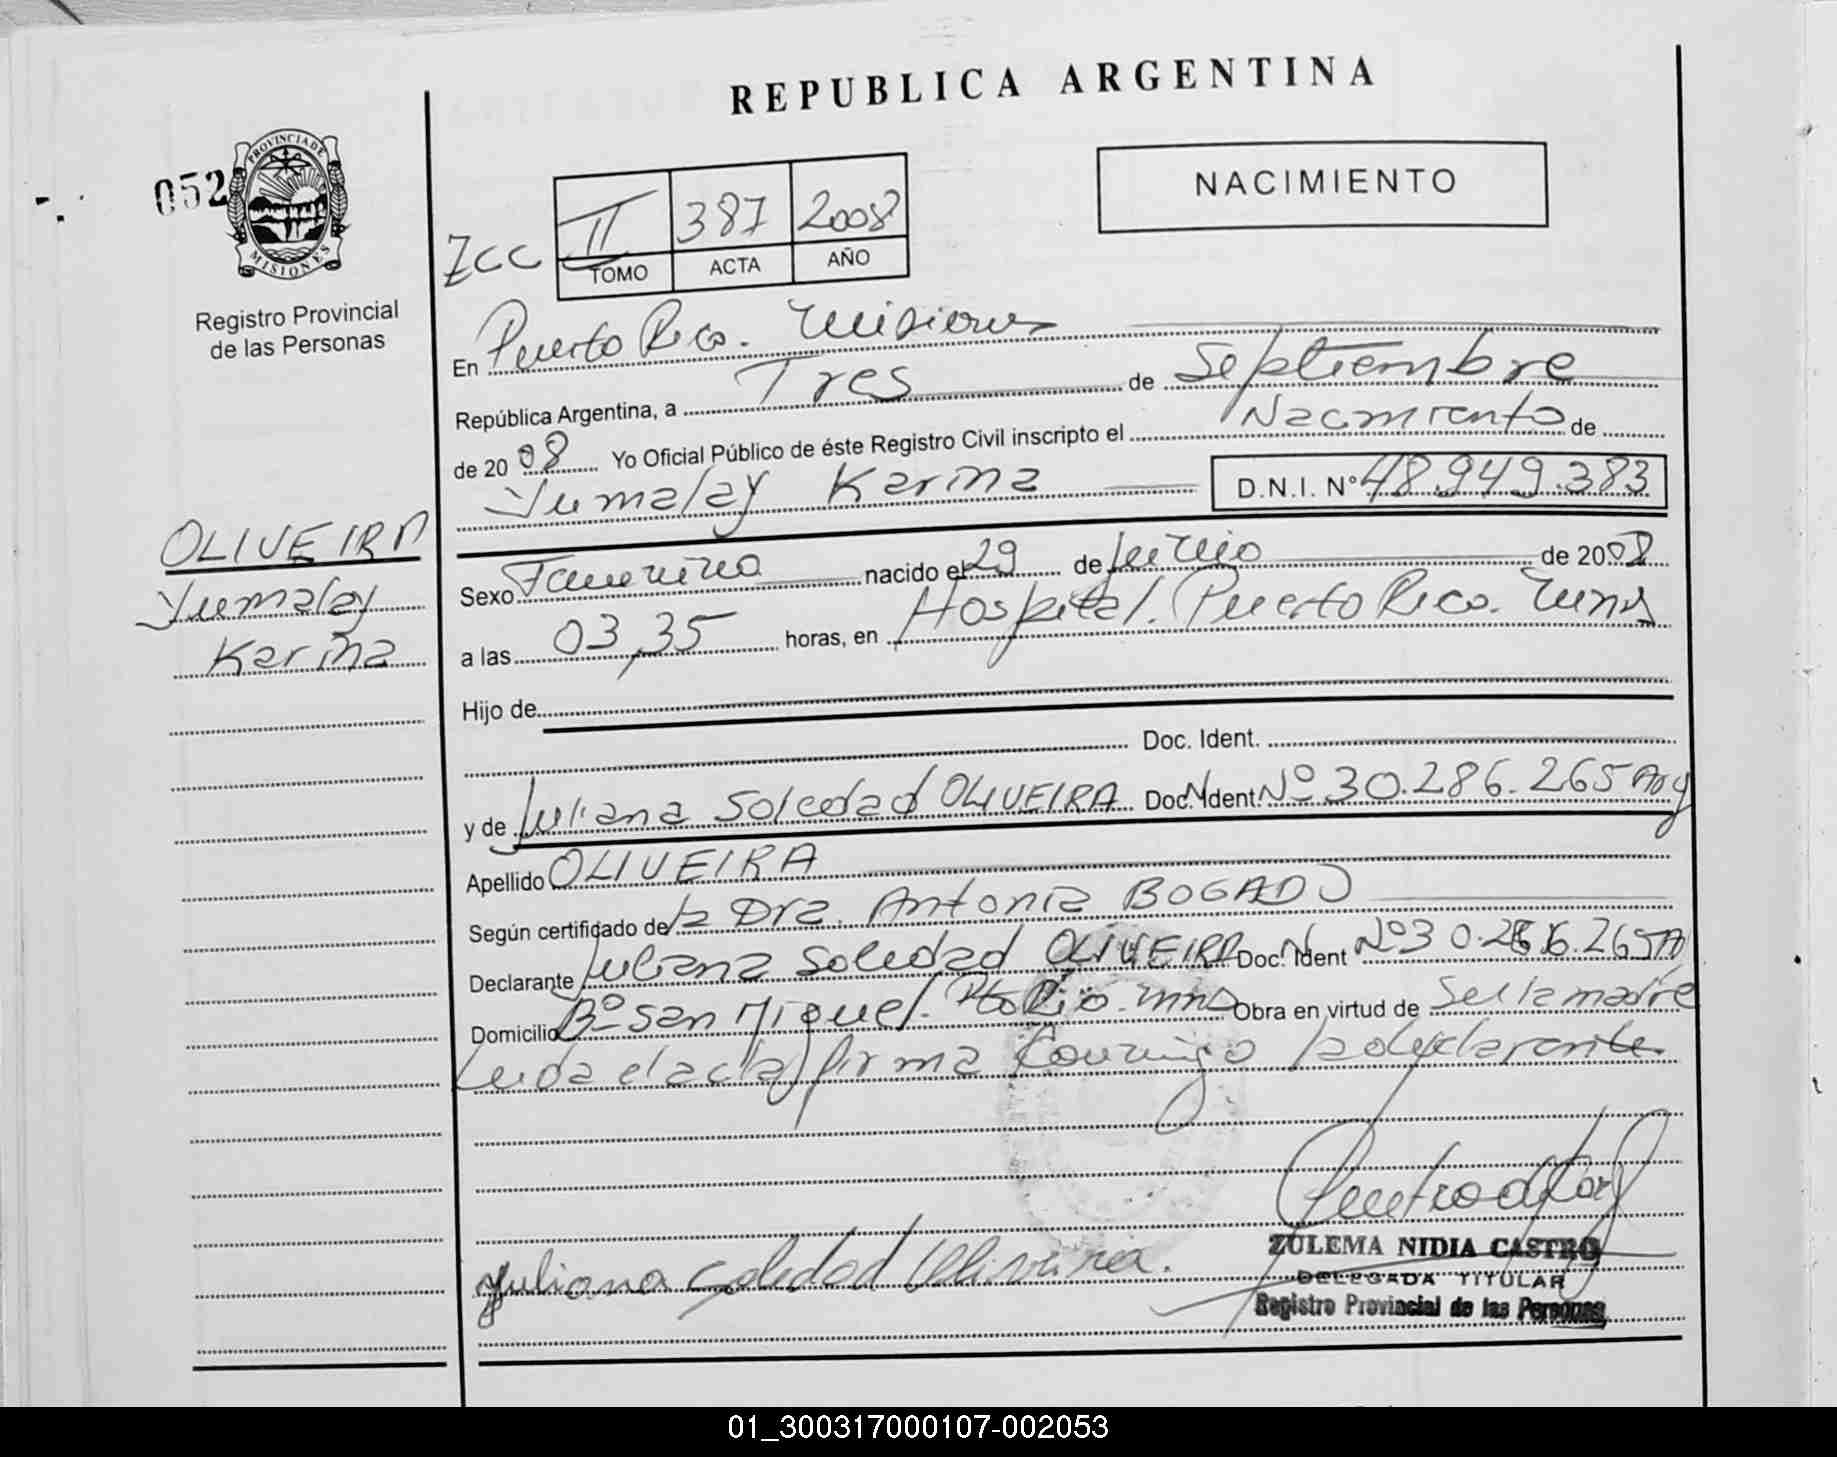 REPUBLICA ARGENTINA
052
PROVINCIA DE
MISIONES
Registro Provincial
de las Personas
NACIMIENTO
II 387 2008
TOMO ACTA AÑO
En Puerto Rico. Misiones
República Argentina, a Tres de Septiembre
de 2008 Yo Oficial Público de éste Registro Civil inscripto el Nacimiento de
Yumalay Karina D.N.I. Nº 48.949.383
OLIVEIRA
Yumalay
Karina
Sexo Femenino nacido el 29 de Junio de 2008
a las 03,35 horas, en Hospital. Puerto Rico.
Hijo de
Doc. Ident.
y de Juliana Soledad OLIVEIRA Doc. Ident. Nº 30.286.265 Arg
Apellido OLIVEIRA
Según certificado de la Dra. Antonia BOGADO
Declarante Juliana Soledad OLIVEIRA Doc. Ident Nº 30.286.265 A
Domicilio Bº San Miguel. Pto Rico. Mns Obra en virtud de Ser la madre
Leida el acta firma Conmigo la declarante
Juliana Soledad Oliveira.
ZULEMA NIDIA CASTRO
DELEGADA TITULAR
Registro Provincial de las Personas
01_300317000107-002053